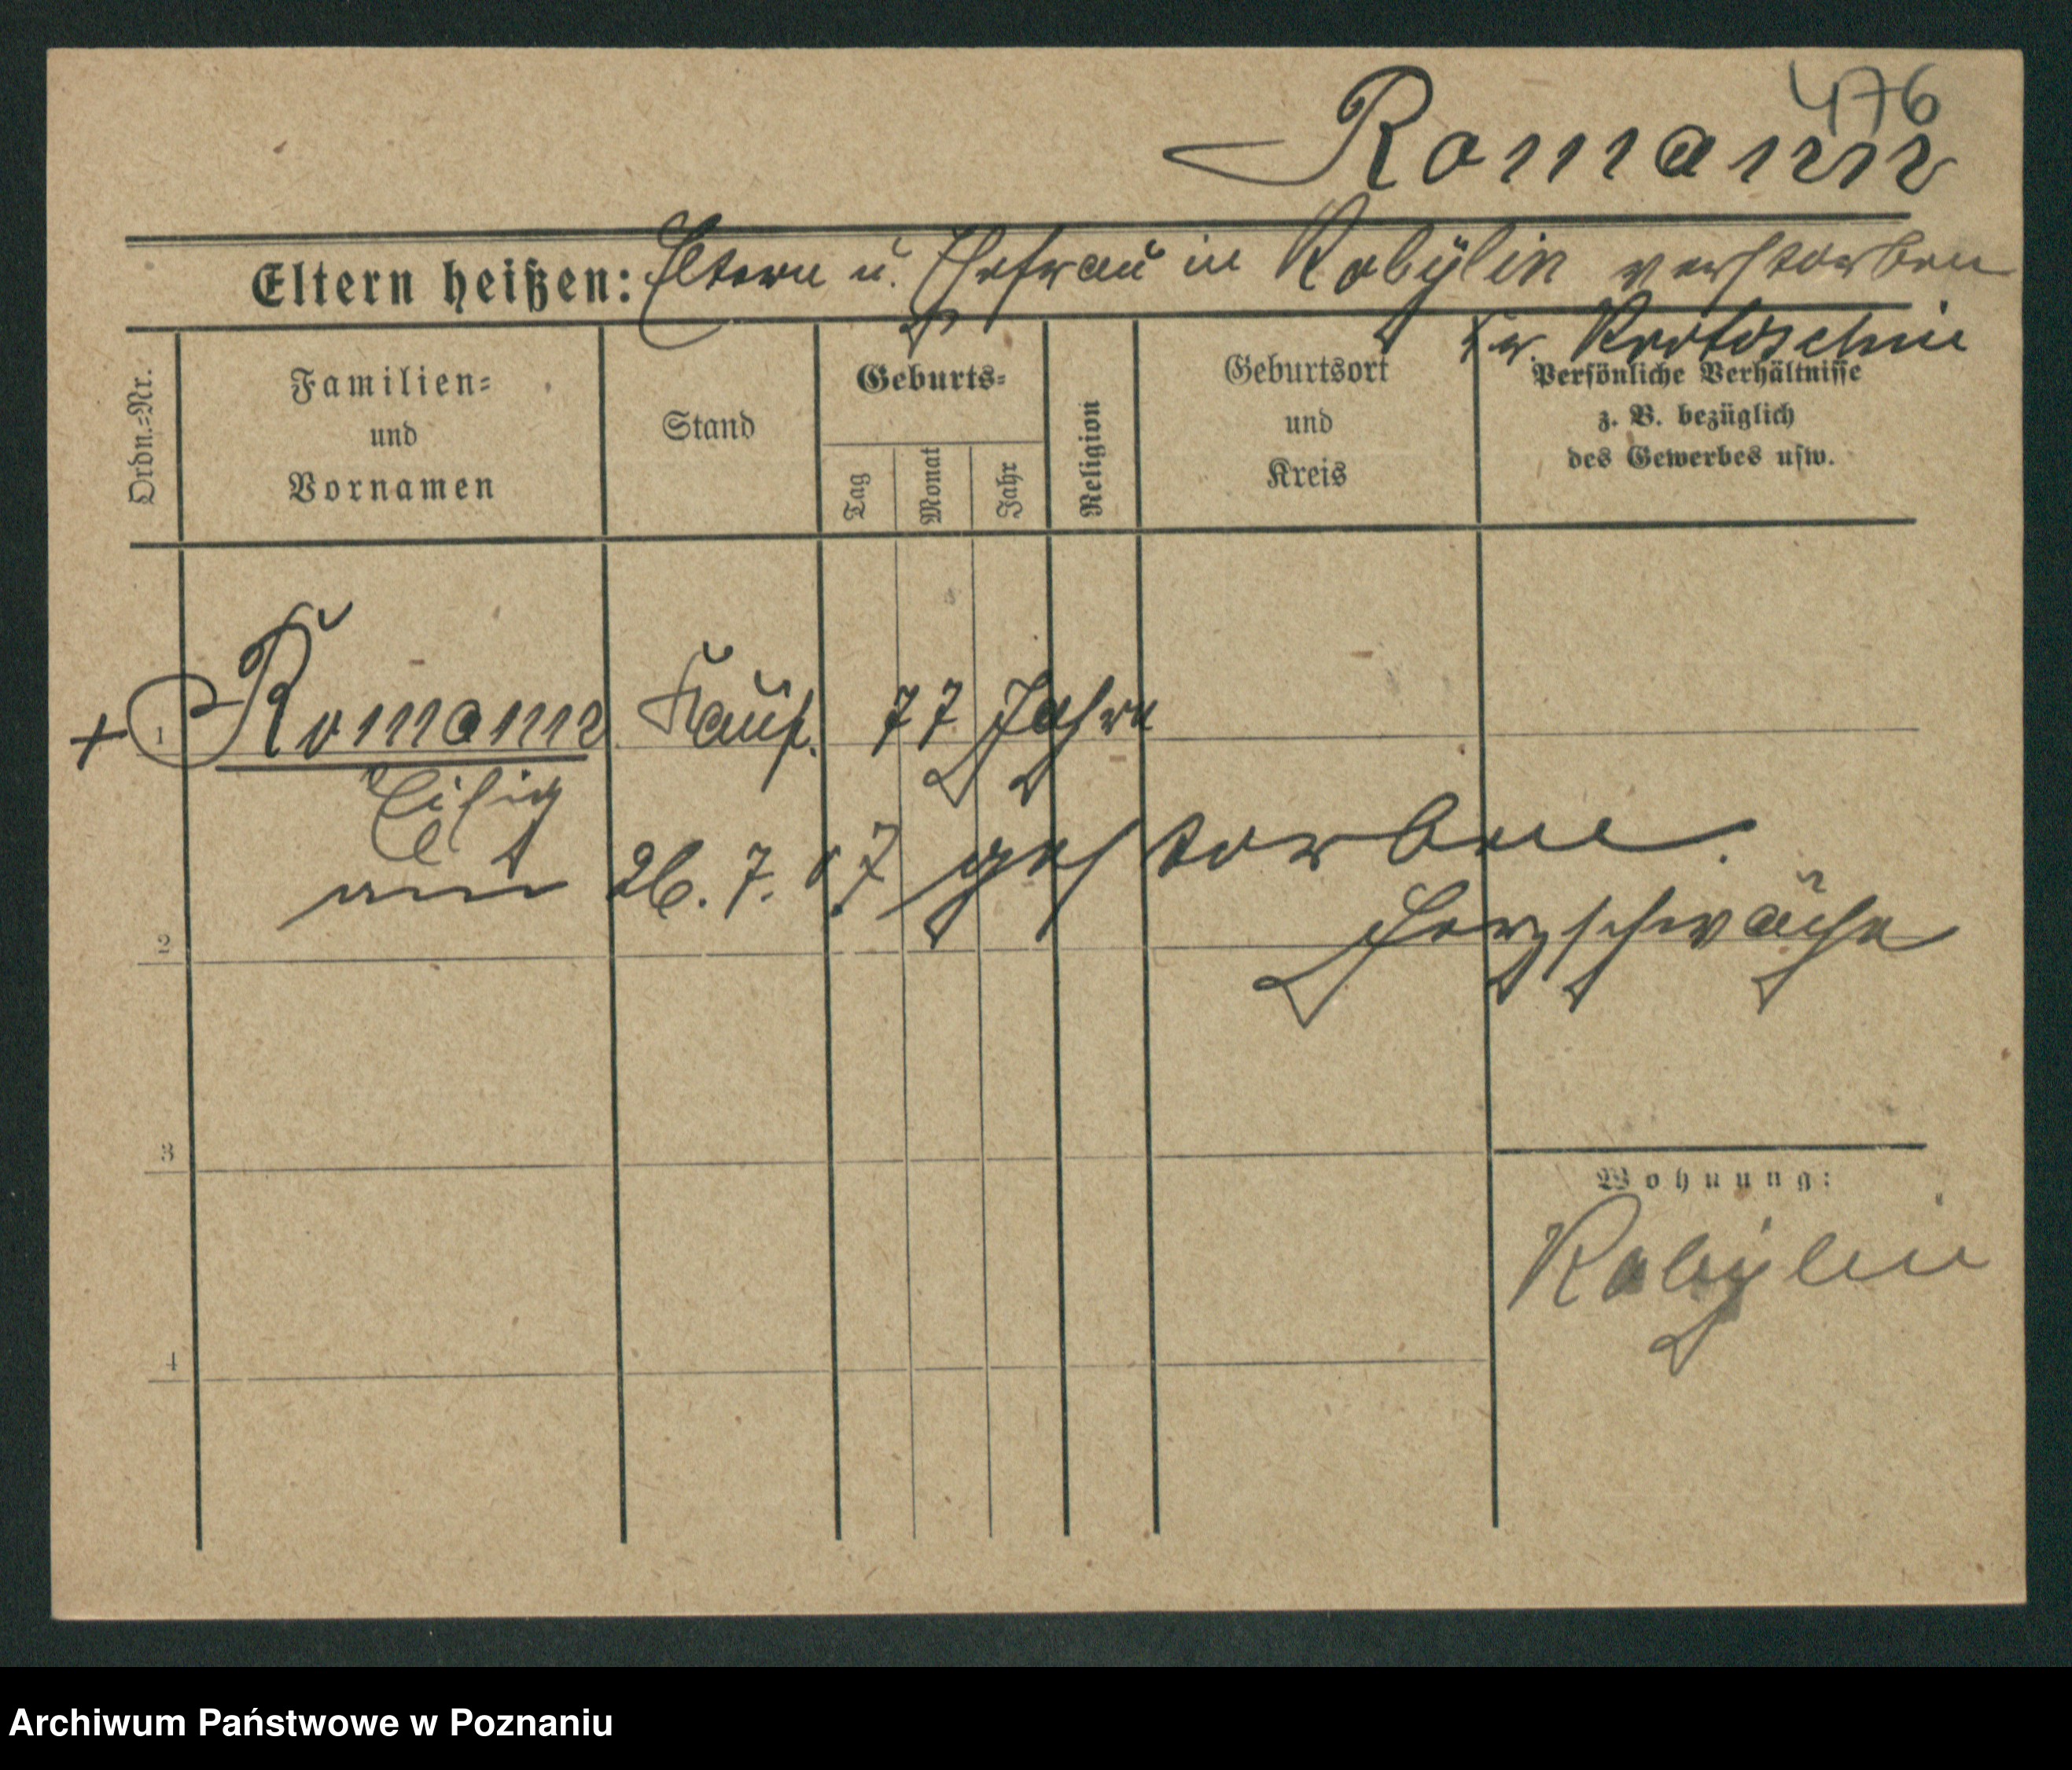 476
Romann
Eltern heißen: Eltern u. Ehefrau in Kobylin verstorben
Kr. Krotoschin
Ordn.-Nr.
Familien-
und
Vornamen
Stand
Geburts-
Tag
Monat
Jahr
Religion
Geburtsort
und
Kreis
Persönliche Verhältnisse
z. B. bezüglich
des Gewerbes usw.
+ 1 Romann Kauf. 77 Jahre
Eisig
am 26. 7. 07 gestorben.
Herzschwäche
2
3
Wohnung:
Kobylin
4
Archiwum Państwowe w Poznaniu